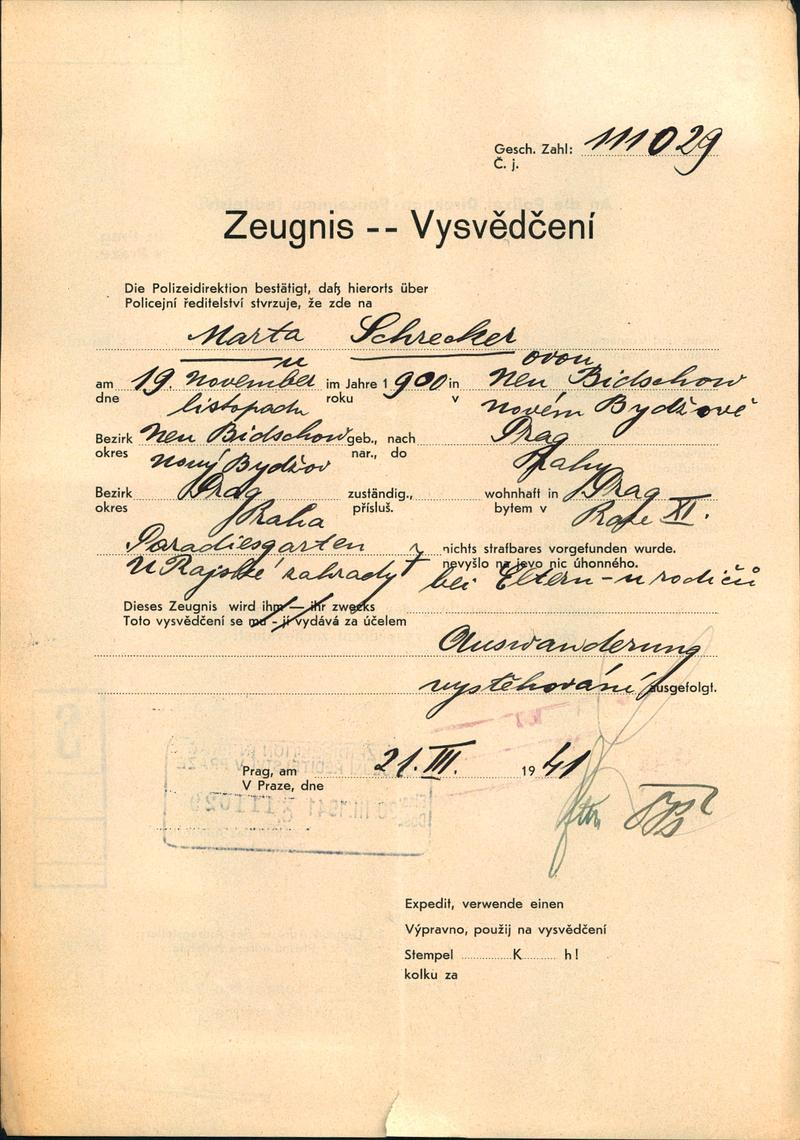 Gesch. Zahl: 111029
Č. j.
Zeugnis -- Vysvědčení
Die Polizeidirektion bestätigt, daß hierorts über
Policejní ředitelství stvrzuje, že zde na
Marta Schrecker
ovou
am 19. November im Jahre 1900 in Neu Bidschow
dne listopadu roku v Novém Bydžově
Bezirk Neu Bidschow geb., nach Prag
okres Nový Bydžov nar., do Prahy
Bezirk Prag zuständig., wohnhaft in Prag
okres Praha přísluš. bytem v Praze XI.
Paradiesgarten 7 nichts strafbares vorgefunden wurde.
U Rajské zahrady nevyšlo na jevo nic úhonného.
bei Eltern - u rodičů
Dieses Zeugnis wird ihm — ihr zwecks
Toto vysvědčení se mu - jí vydává za účelem
Auswanderung
vystěhování ausgefolgt.
Prag, am 21. III. 1941
V Praze, dne
Expedit, verwende einen
Výpravno, použij na vysvědčení
Stempel K h!
kolku za